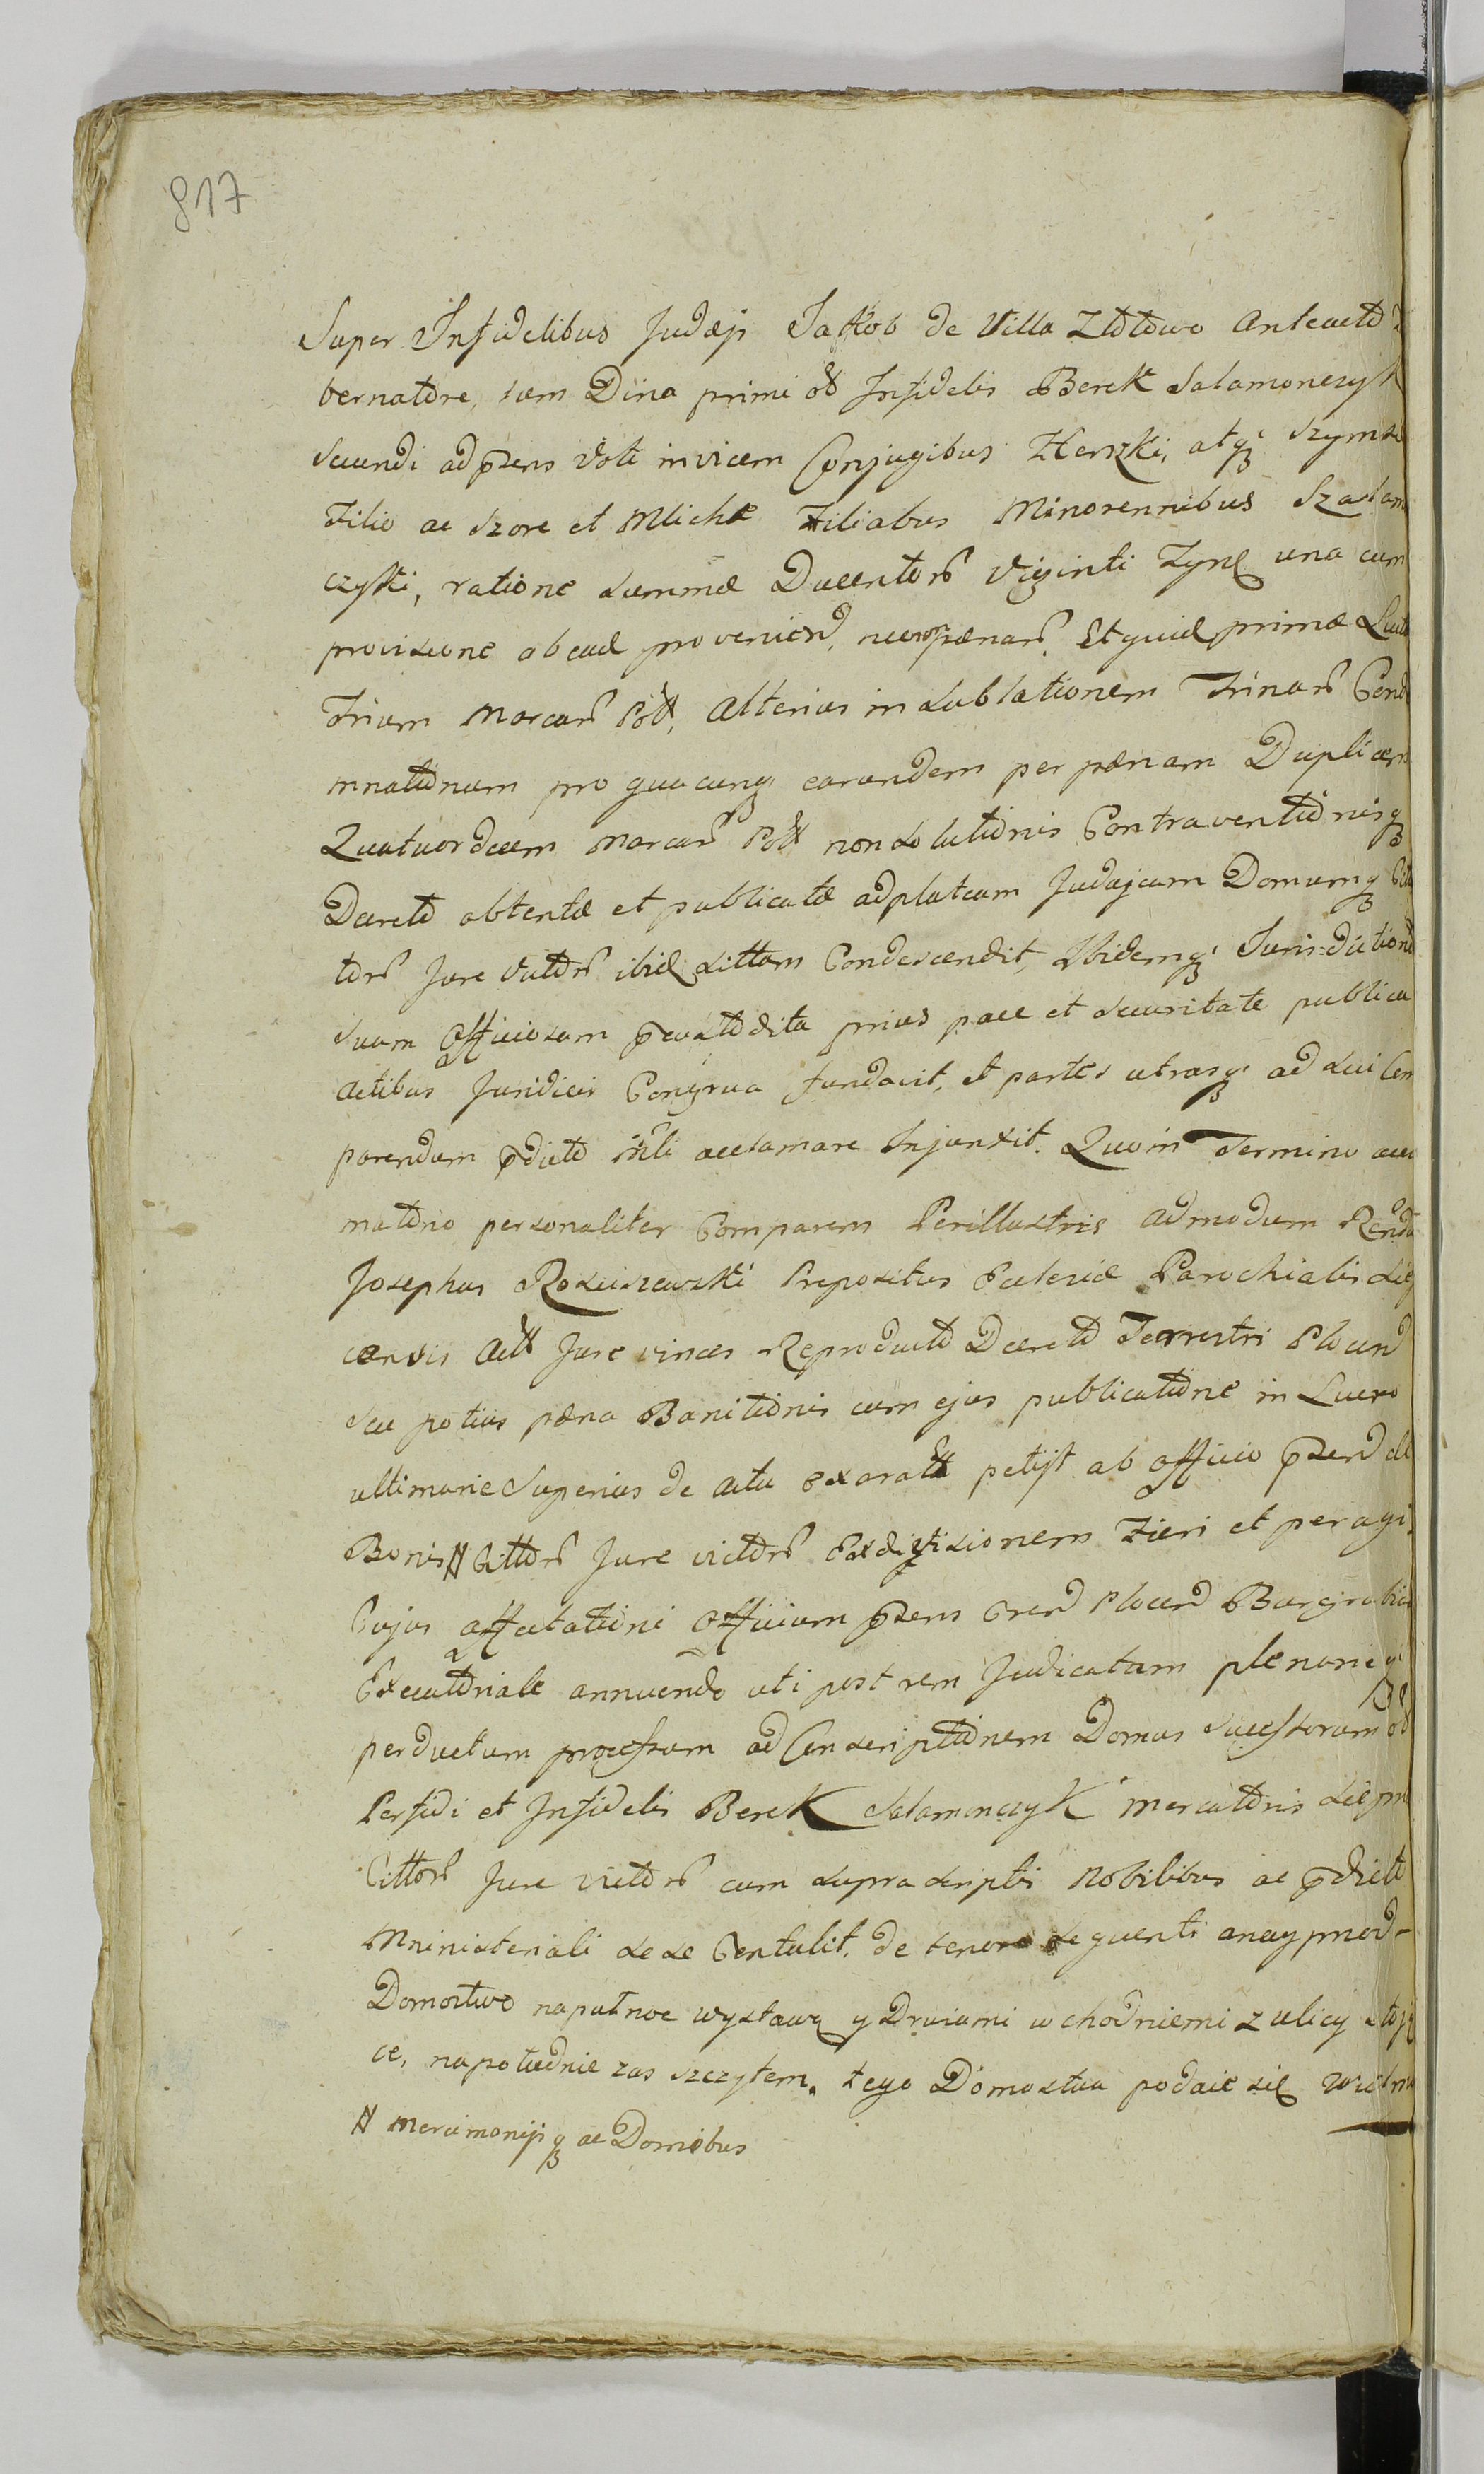 817
Super Infidelibus Judæis Jakob de Villa Złotowo
bernatore, tum Dina primi ac Infidelis Berek Salamonczyk
Secundi ad pssens Voti invicem Conjugibus Herszki, atq Szymsi
Filio ac Szore et Mliche Filiabus Minorennibus
czyki, ratione summæ Ducentor Viginti una cum
provisione ab ead proveniend, necnon pænar. Et quid primæ
Trium Marcar Poll, Alterius in sublationem Trinar Cond
mnationum pro quacunq earundem per pænam Duplicem
Quatuordecem Marcar Poll non solutionis Contraventionisq
Decreto obtentæ et publicatæ ad plateam Judajcam Domumq
tor Jure Victor ibid sittam Condescendit, Ibidemq Juris=dictione
suam Officiosam pcustodita prius pace et securitate publica
Actibus Juridicis Congrua fundavit, et partes utrasq ad sui Com
parendum pdicto acclamare Injunxit. Quo in Termino
matorio personaliter Comparens Perillustris admodum Rendu
Josephus Rosciszewski Prepositus Eclesiæ Parochialis
censis Jure vinces Reproducto Decreto Terrestri Plocen
seu potius pæna Banitionis cum ejus publicatione in
ultimarie Superius de actu petijt ab officio pssen
Bonis # Citor Jure victor Exdivisionem Fieri et peragi.
Cujus affectationi Officium pssens Plocen Burgrabia
Executoriale annuendo uti post rem Judicatam plenarie q
perductum processum ad Conscriptionem Domus Sucessorum
Perfidi et Infidelis Berek Salamonczyk mercatoris
Cittor Jure victor cum supra scriptis Nobilibus ac pdicto
Ministeriali sese Contulit. de tenore sequenti
Domostwo na pułnoc wystawą y Drzwiami wchodniemi z ulicy stoją
ce, na południe zas szczytem. tego Domostwa podaie się
# mercimonijsq ac Domibus